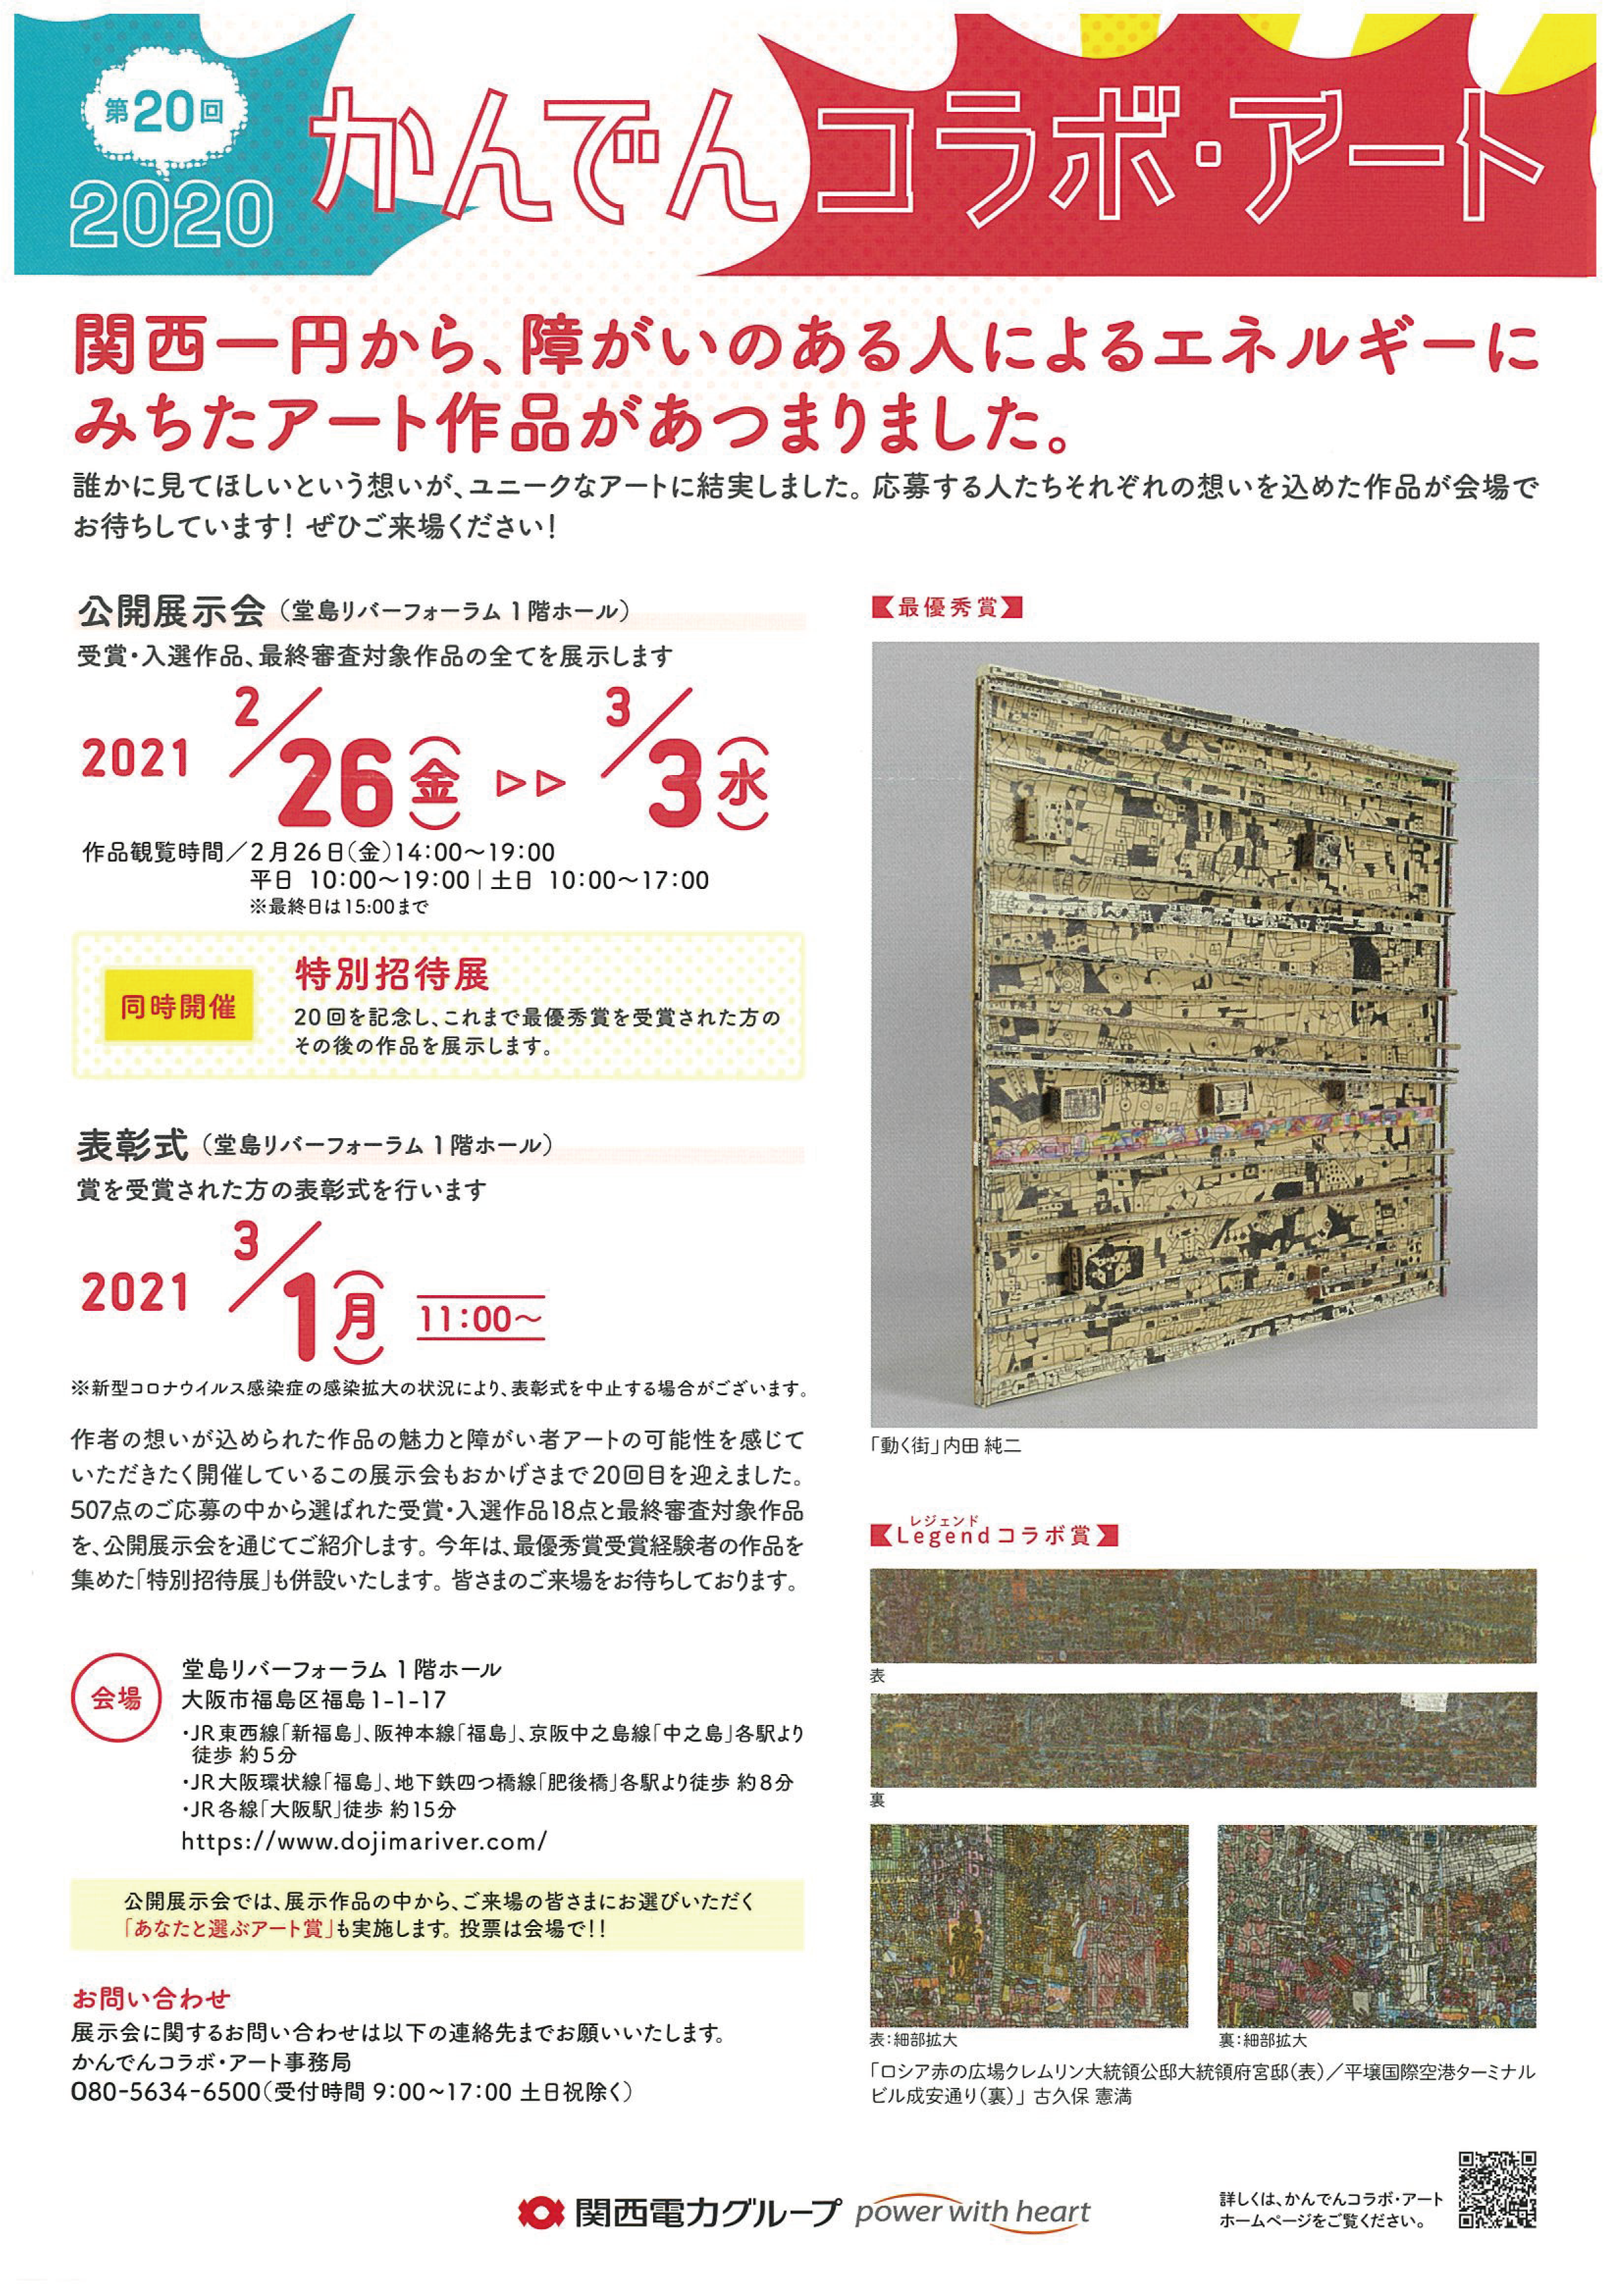 第20回
2020
かんでんコラボ・アート
関西一円から、障がいのある人によるエネルギーに
みちたアート作品があつまりました。
誰かに見てほしいという想いが、ユニークなアートに結実しました。応募する人たちそれぞれの想いを込めた作品が会場で
お待ちしています！ ぜひご来場ください！
公開展示会（堂島リバーフォーラム 1階ホール）
受賞・入選作品、最終審査対象作品の全てを展示します
2021 2/26(金) ▷▷ 3/3(水)
作品観覧時間／2月26日(金)14:00〜19:00
平日 10:00〜19:00 | 土日 10:00〜17:00
※最終日は15:00まで
同時開催
特別招待展
20回を記念し、これまで最優秀賞を受賞された方の
その後の作品を展示します。
表彰式（堂島リバーフォーラム 1階ホール）
賞を受賞された方の表彰式を行います
2021 3/1(月) 11:00〜
※新型コロナウイルス感染症の感染拡大の状況により、表彰式を中止する場合がございます。
作者の想いが込められた作品の魅力と障がい者アートの可能性を感じて
いただきたく開催しているこの展示会もおかげさまで20回目を迎えました。
507点のご応募の中から選ばれた受賞・入選作品18点と最終審査対象作品
を、公開展示会を通じてご紹介します。今年は、最優秀賞受賞経験者の作品を
集めた「特別招待展」も併設いたします。皆さまのご来場をお待ちしております。
会場
堂島リバーフォーラム 1階ホール
大阪市福島区福島1-1-17
・JR東西線「新福島」、阪神本線「福島」、京阪中之島線「中之島」各駅より
徒歩 約5分
・JR大阪環状線「福島」、地下鉄四つ橋線「肥後橋」各駅より徒歩 約8分
・JR各線「大阪駅」徒歩 約15分
https://www.dojimariver.com/
公開展示会では、展示作品の中から、ご来場の皆さまにお選びいただく
「あなたと選ぶアート賞」も実施します。投票は会場で!!
お問い合わせ
展示会に関するお問い合わせは以下の連絡先までお願いいたします。
かんでんコラボ・アート事務局
080-5634-6500(受付時間 9:00~17:00 土日祝除く)
最優秀賞
「動く街」内田 純二
レジェンド
Legendコラボ賞
表
裏
表:細部拡大
裏:細部拡大
「ロシア赤の広場クレムリン大統領公邸大統領府宮邸(表)／平壌国際空港ターミナル
ビル成安通り(裏)」 古久保 憲満
関西電力グループ power with heart
詳しくは、かんでんコラボ・アート
ホームページをご覧ください。